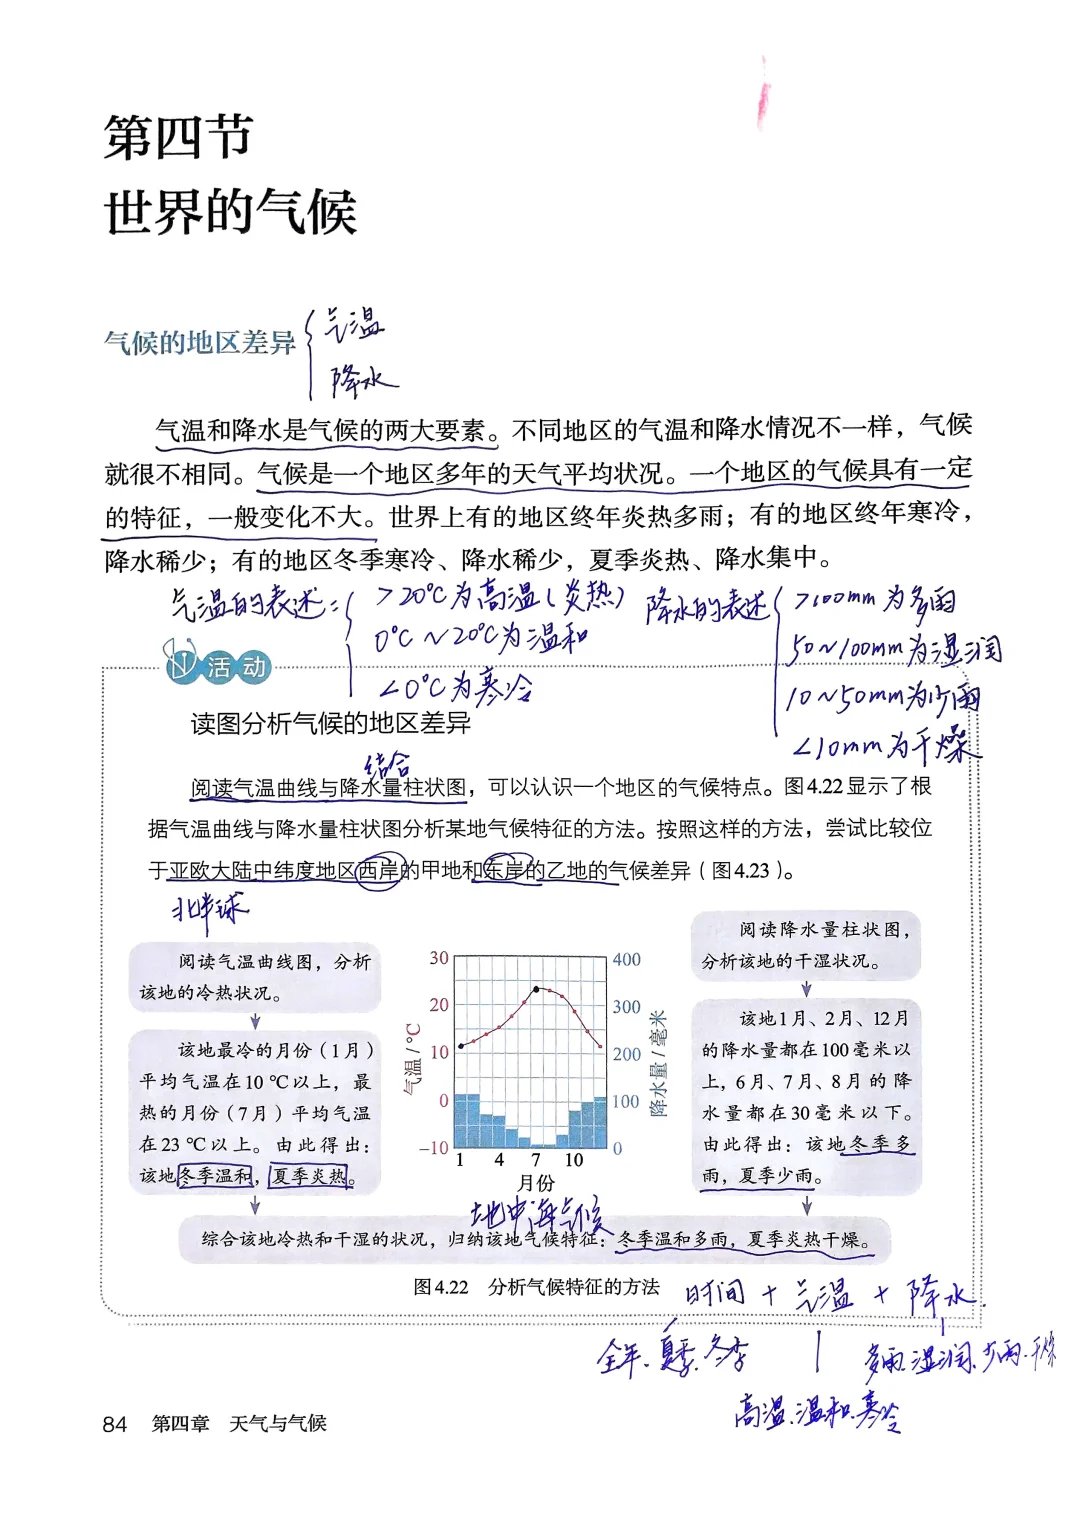 第四节
世界的气候
气候的地区差异
气温
降水
气温和降水是气候的两大要素。不同地区的气温和降水情况不一样，气候
就很不相同。气候是一个地区多年的天气平均状况。一个地区的气候具有一定
的特征，一般变化不大。世界上有的地区终年炎热多雨；有的地区终年寒冷，
降水稀少；有的地区冬季寒冷、降水稀少，夏季炎热、降水集中。
气温的表述：
>20℃为高温（炎热）
0℃~20℃为温和
<0℃为寒冷
降水的表述
>100mm为多雨
50~100mm为湿润
10~50mm为少雨
<10mm为干燥
活动
读图分析气候的地区差异
结合
阅读气温曲线与降水量柱状图，可以认识一个地区的气候特点。图4.22显示了根
据气温曲线与降水量柱状图分析某地气候特征的方法。按照这样的方法，尝试比较位
于亚欧大陆中纬度地区西岸的甲地和东岸的乙地的气候差异（图4.23）。
北半球
阅读气温曲线图，分析
该地的冷热状况。
该地最冷的月份（1月）
平均气温在10 ℃以上，最
热的月份（7月）平均气温
在23 ℃以上。由此得出：
该地冬季温和，夏季炎热。
气温 / ℃
30
20
10
0
-10
400
300
200
100
0
降水量 / 毫米
1 4 7 10
月份
阅读降水量柱状图，
分析该地的干湿状况。
该地1月、2月、12月
的降水量都在100毫米以
上，6月、7月、8月的降
水量都在30毫米以下。
由此得出：该地冬季多
雨，夏季少雨。
地中海气候
综合该地冷热和干湿的状况，归纳该地气候特征：冬季温和多雨，夏季炎热干燥。
图4.22 分析气候特征的方法
时间 + 气温 + 降水.
全年、夏季、冬季
多雨、湿润、少雨、干燥
高温、温和、寒冷
84 第四章 天气与气候